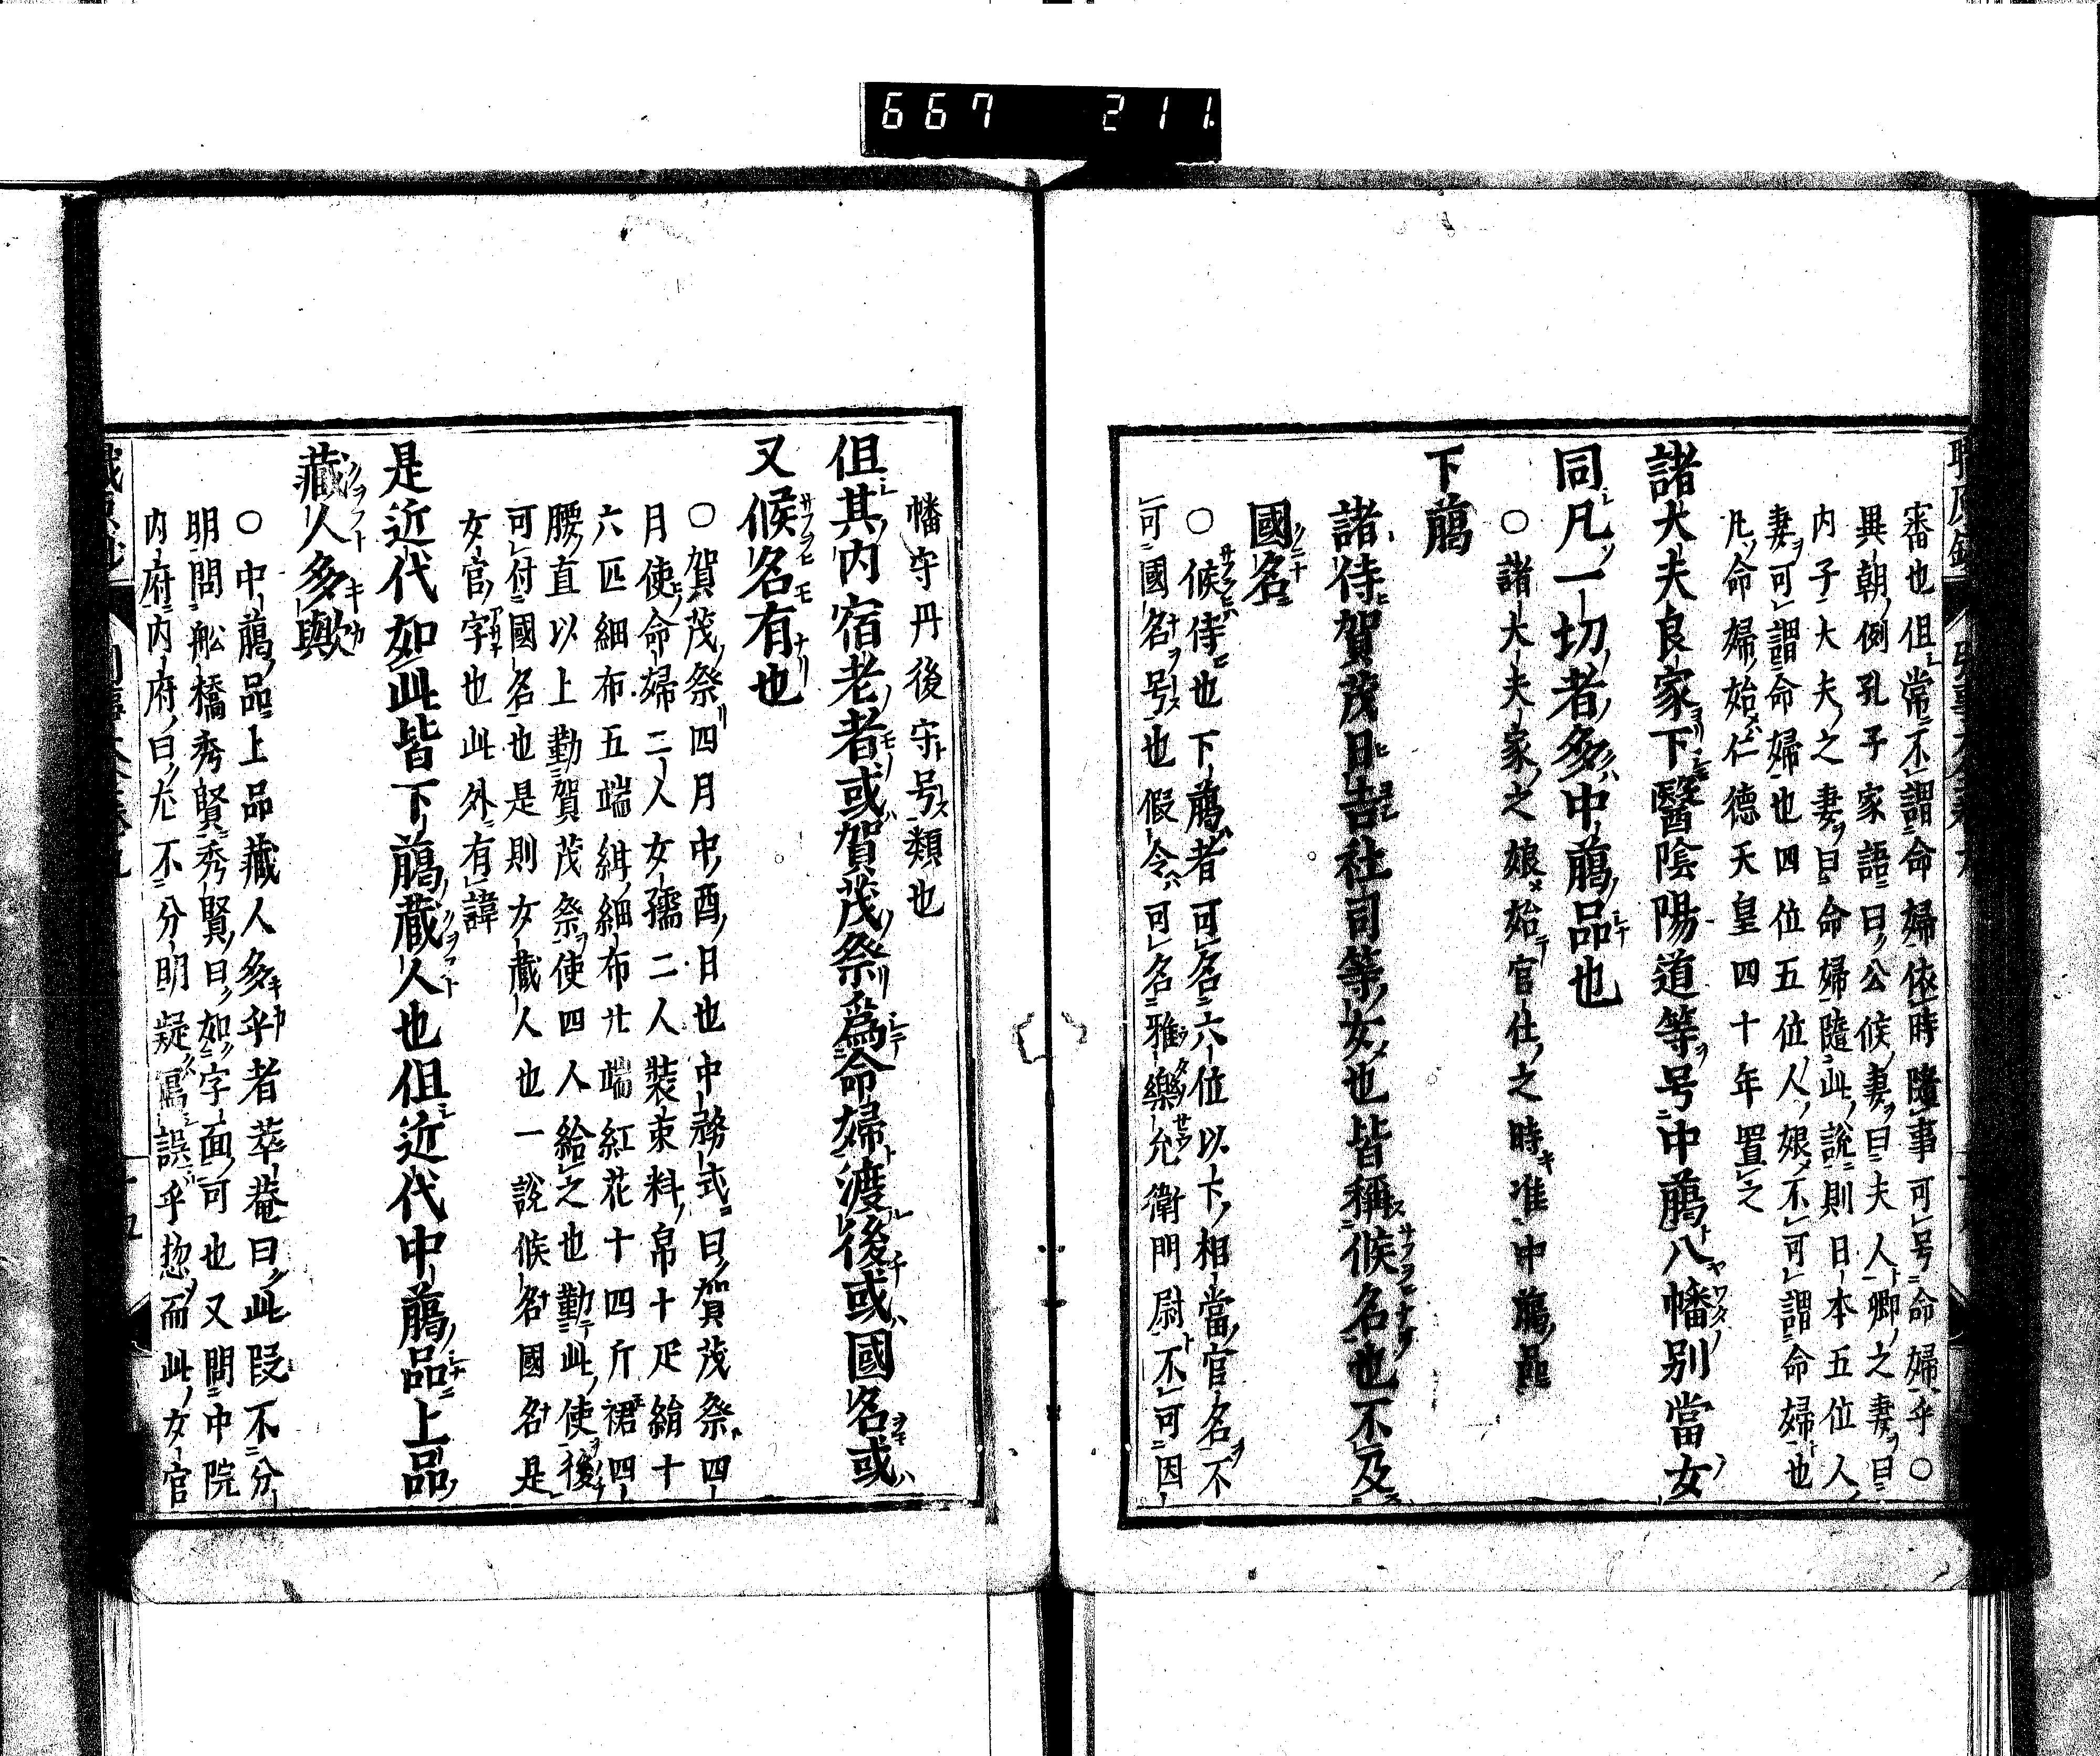 667 211
審也但常不謂命婦依時隨事可号命婦乎○
異朝例孔子家語曰公候妻曰夫人卿之妻曰
内子大夫之妻曰命婦隨此說則日本五位人
妻可謂命婦也四位五位人娘不可謂命婦也
凡命婦始仁德天皇四十年置之
諸大夫良家下醫陰陽道等号中﨟八幡别當女
同凡一切者多中﨟品也
○諸大夫家之娘始官仕之時准中﨟品
下﨟
諸侍賀茂日吉社司等女也皆稱候名也不及
國名
○候侍也下﨟者可名六位以下相當官名不
可國名号也假令可名雅樂允衛門尉不可因
幡守丹後守号類也
但其内宿老者或賀茂祭爲命婦渡後或國名或
又候名有也
○賀茂祭四月中酉日也中務式曰賀茂祭四
月使命婦二人女孺二人裝束料帛十疋絹十
六匹細布五端紺細布廿端紅花十四斤裙四
腰直以上勤賀茂祭使四人給之也勤此使後
可付國名也是則女藏人也一說候名國名是
女官字也此外有諱
是近代如此皆下﨟藏人也但近代中﨟品上品
藏人多歟
○中﨟品上品藏人多乎者萃菴曰此段不分
明問舩橋秀賢秀賢曰如字面可也又問中院
内府内府曰尤不分明疑寫誤乎惣而此女官